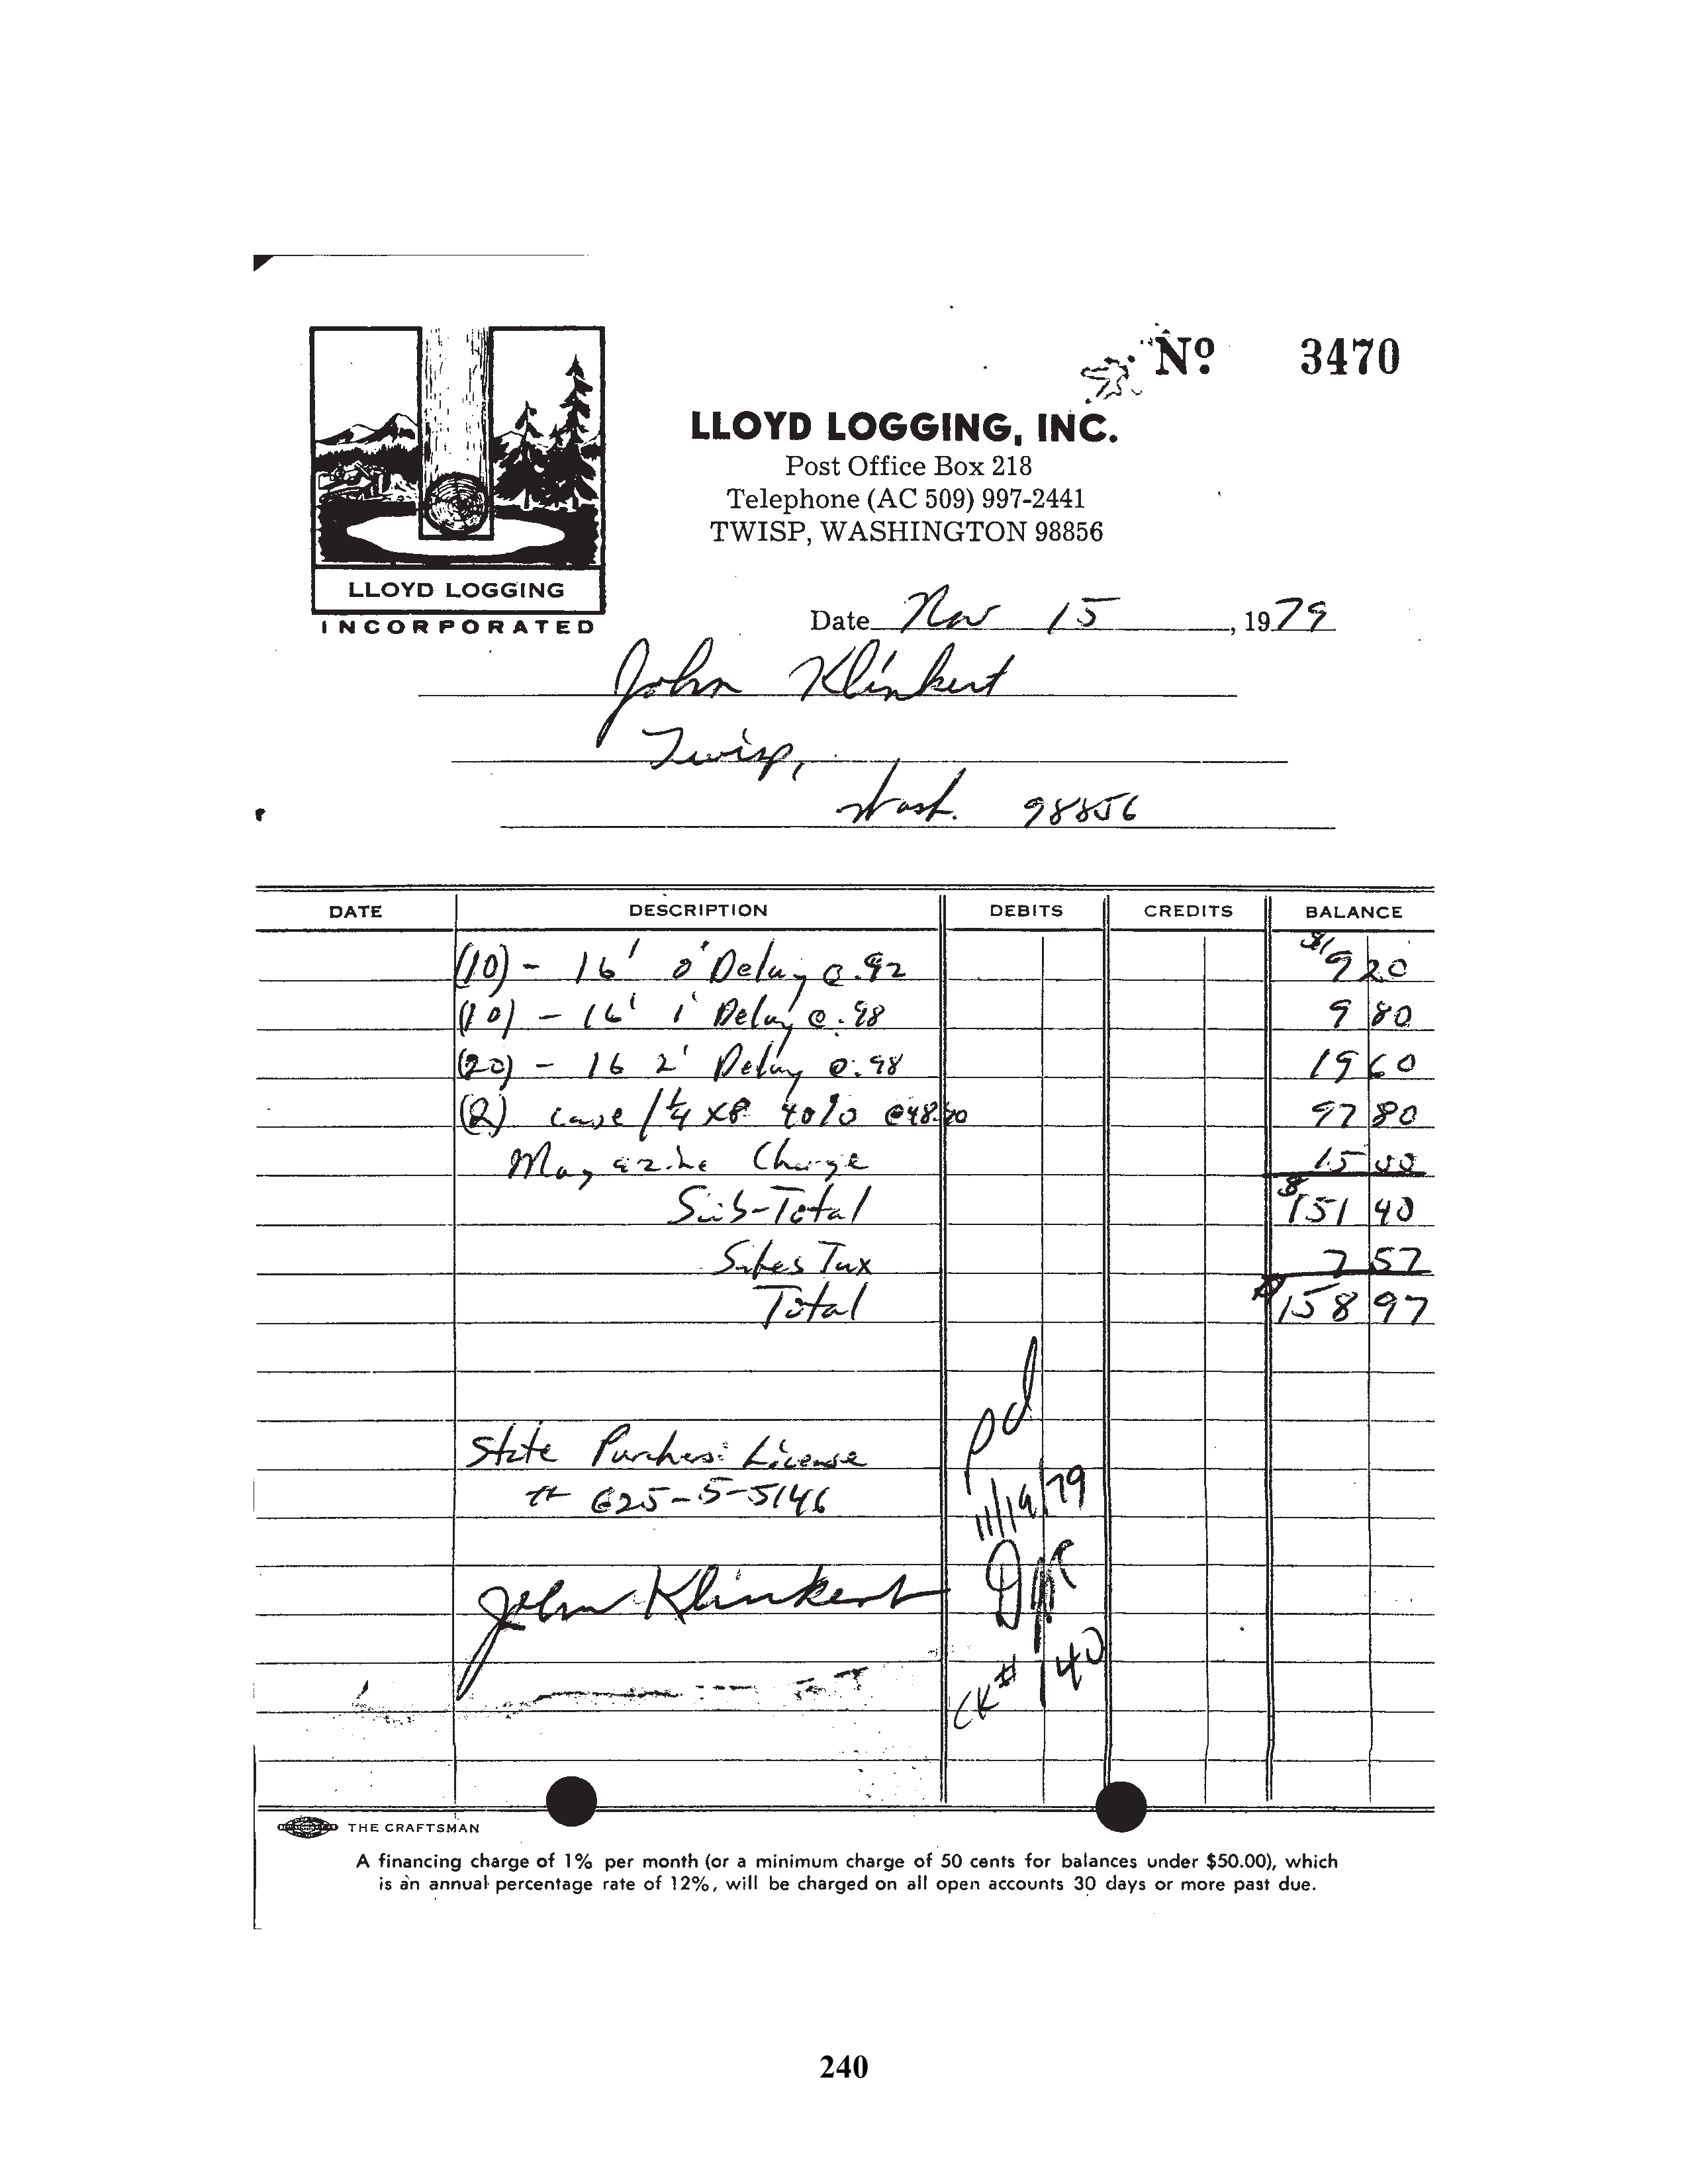 Nº 3470
LLOYD LOGGING, INC.
Post Office Box 218
Telephone (AC 509) 997-2441
TWISP, WASHINGTON 98856
LLOYD LOGGING
INCORPORATED
Date Nov 15, 1979
John Klinkert
Twisp,
Wash. 98856
DATE DESCRIPTION DEBITS CREDITS BALANCE
(10) - 16' 0' Delay @ .92 $ 9 20
(10) - 16' 1' Delay @ .98 9 80
(20) - 16 2' Delay @ .98 19 60
(2) case 1 1/4 x8 40% @ 97 80
Magazine Charge 15 00
Sub-Total $151 40
Sales Tax 7 57
Total $158 97
pd
State Purchase License
# 625-5-5146
11/19/79
John Klinkert
CK# 140
THE CRAFTSMAN
A financing charge of 1% per month (or a minimum charge of 50 cents for balances under $50.00), which
is an annual percentage rate of 12%, will be charged on all open accounts 30 days or more past due.
240